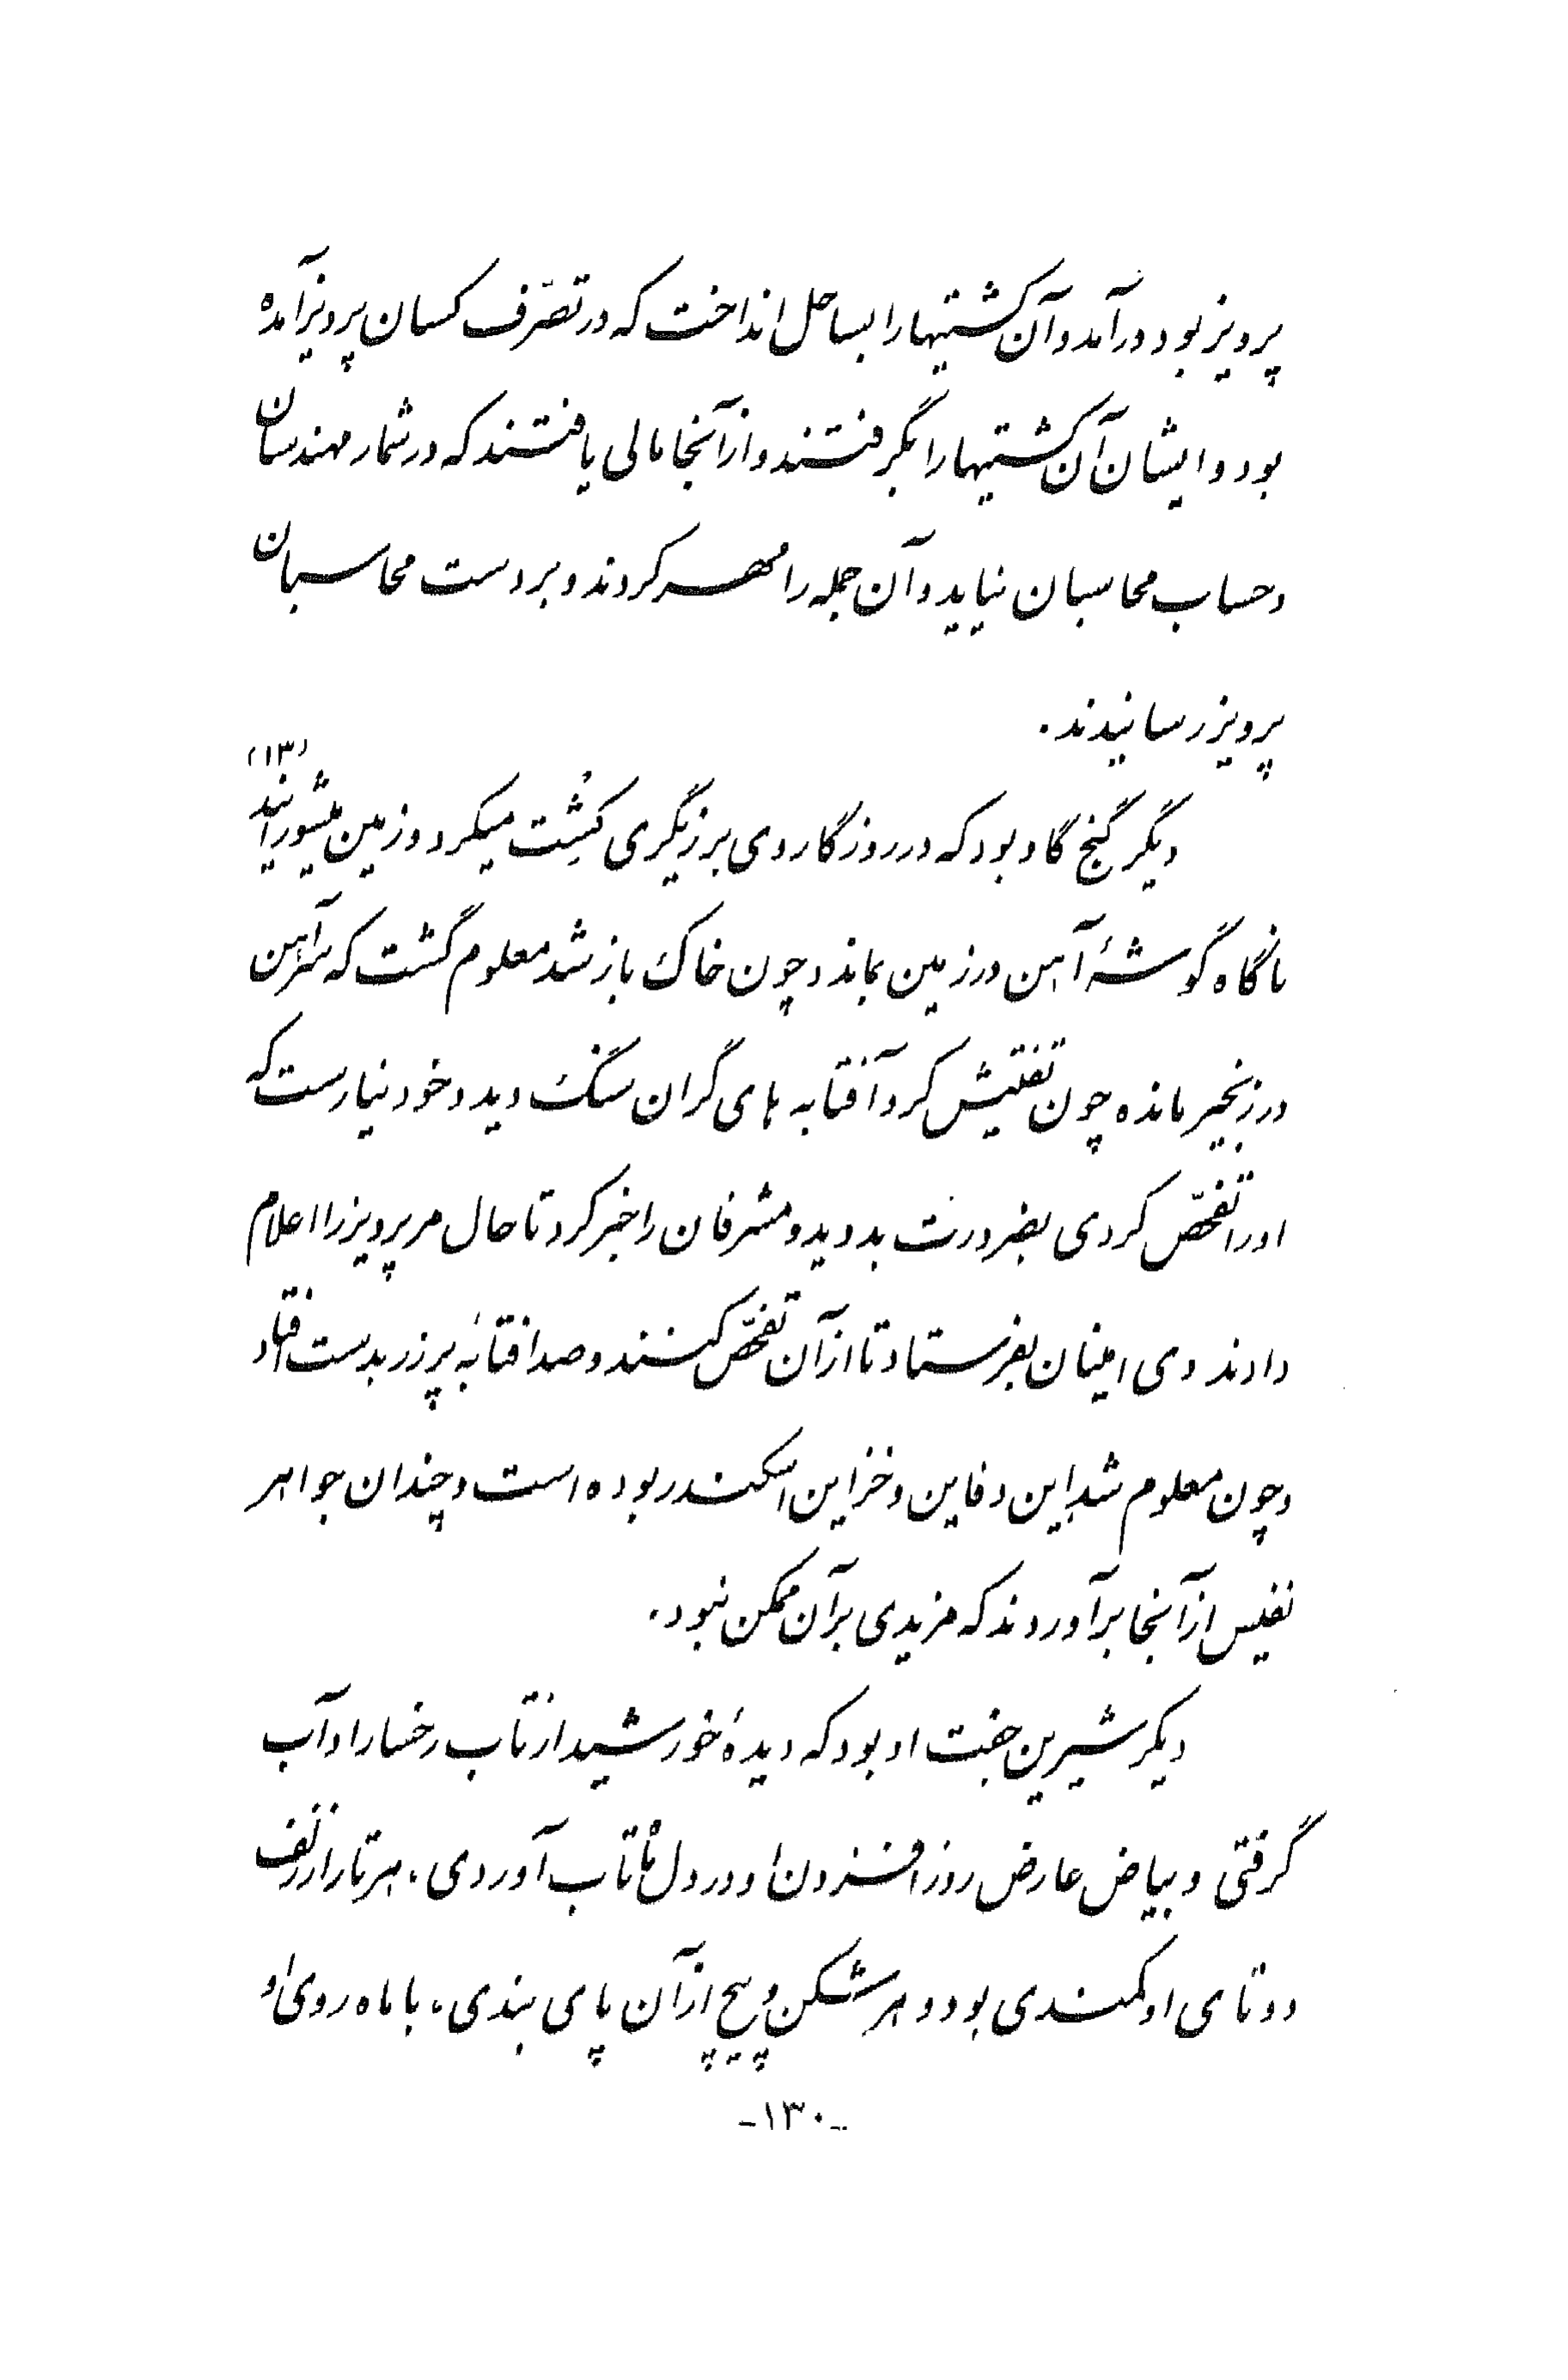 پرویز بود درآمد و آن کشتیها را بساحل انداخت که در تصرّف کسان پرویز آمده
بود و ایشان آن کشتیها را بگرفتند و از آنجا مالی یافتند که در شمار مهندسان
و حساب محاسبان نیاید و آن جمله را مهر کردند و بر دست محاسبان
پرویز رسانیدند.
(۱۳)
دیگر گنج گاو بود که در روزگار وی برزیگری کِشت میکرد و زمین میشورانید
ناگاه گوشهٔ آهن در زمین بماند و چون خاک باز شد معلوم گشت که سر آهن
در زنجیر مانده چون تفتیش کرد آفتابه های گران سنگ دید و خود نیارست که
او را تفحّص کردی بضرورت بدوید و مشرفان را خبر کرد تا حال مر پرویز را اعلام
دادند وی امینان بفرستاد تا از آن تفحّص کنند و صد افتابهٔ پر زر بدست افتاد
و چون معلوم شد این دفاین و خزاین اسکندر بوده است و چندان جواهر
نفیس از آنجا برآوردند که مزیدی بر آن ممکن نبود.
دیگر شیرین جفت او بود که دیدهٔ خورشید از تاب رخسار او آب
گرفتی و بیاض عارض روز افزون او در دل تاب آوردی. هر تار از زلف
دوتای او کمندی بود و هر شکن و پیچ از آن پای بندی، با ماه روی او
-۱۳۰-